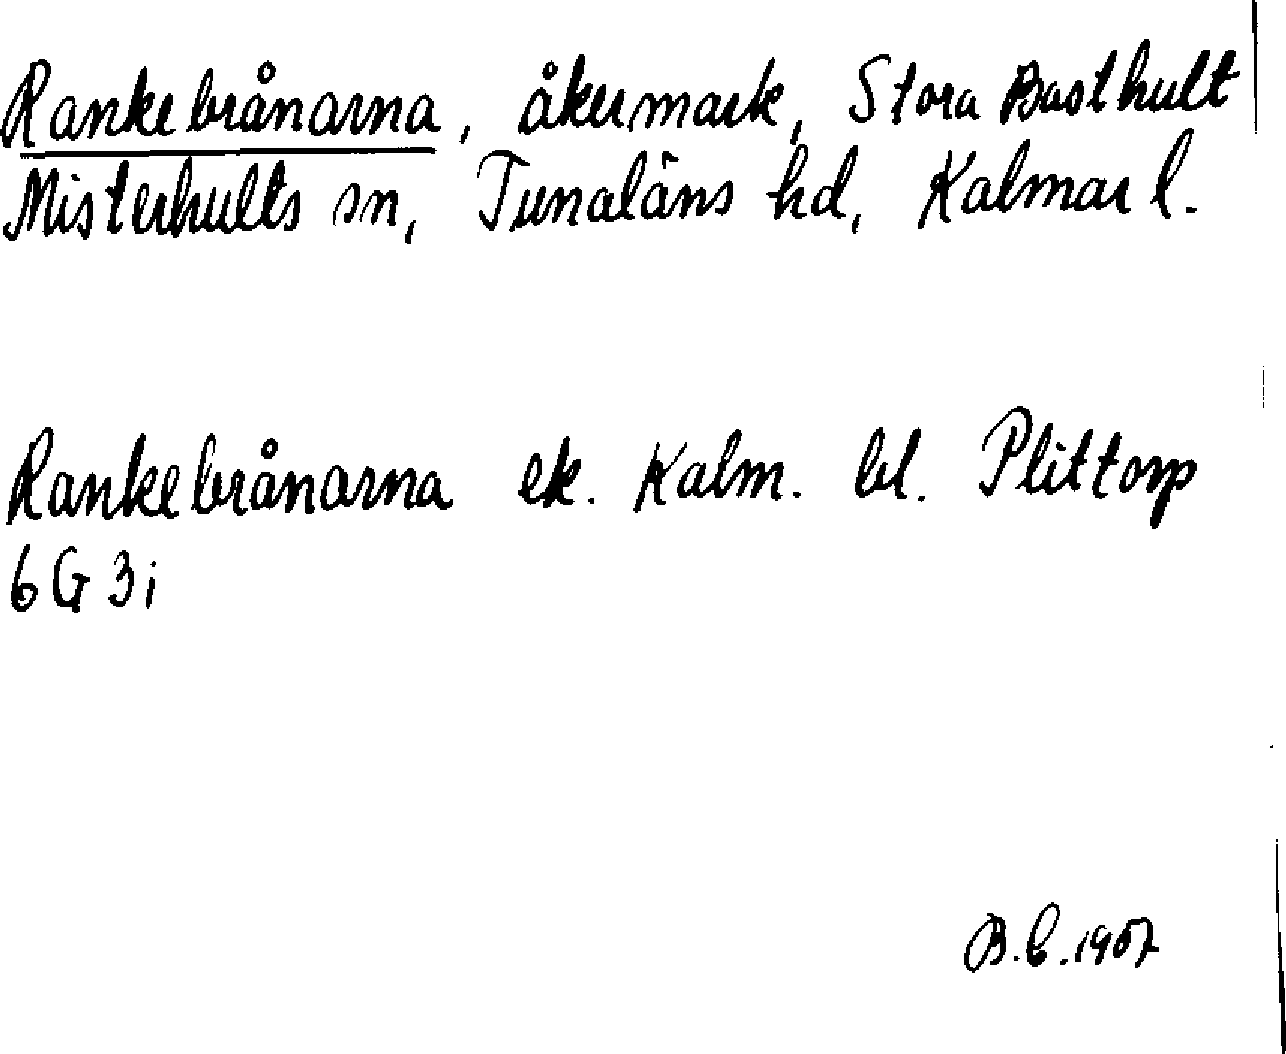 Rankebrånarna, åkermark, Stora Basthult
Misterhults sn, Tunaläns hd, Kalmar l.
Rankebrånarna ek. Kalm. bl. Plittorp
6G 3i
B.E. 1967